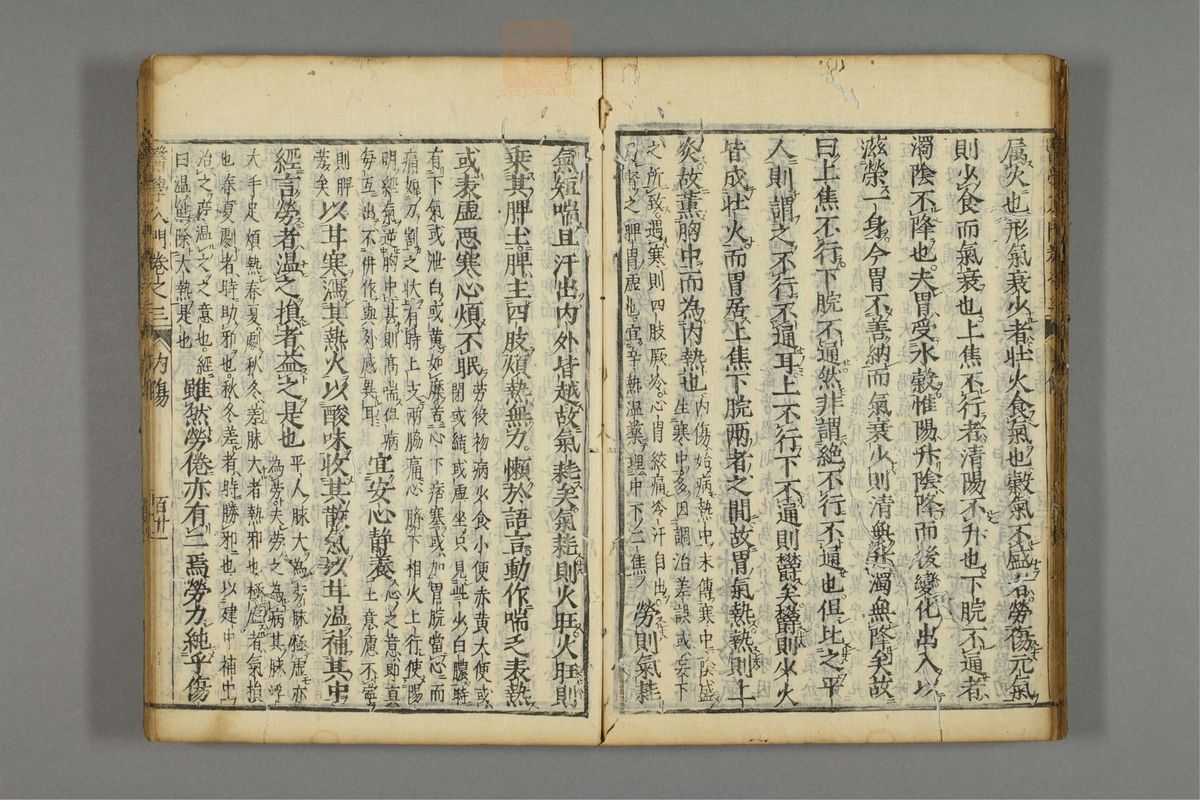 属火也形氣衰少者壮火食氣也穀氣不盛者勞傷元氣
則少食而氣衰也上焦不行者清陽不升也下脘不通者
濁陰不降也夫胃受水穀惟陽升陰降而後變化出入以
滋榮一身今胃不善納而氣衰少則清無升濁無降矣故
曰上焦不行下脘不通然非謂絶不行不通也但比之平
人則謂之不行不通耳上不行下不通則欝矣欝則少火
皆成壮火而胃居上焦下脘兩者之間故胃氣熱熱則上
炎故薫胸中而為内熱也
内傷始病熱中末傳寒中
生寒中多因調治差誤或妄下
之所致遇寒則四肢厥冷心胃絞痛冷汗自出
乃腎之脾胃虚也宜辛熱温藥理中下二焦
勞則氣耗
氣短喘且汗出内外皆越故氣耗矣氣耗則火旺火旺則
乗其脾土脾主四肢煩熱無力懶於語言動作喘乏表熱
或表虚惡寒心煩不眠
勞役初病火食小便赤黄大便或
閉或結或虚坐只見些少白膿時
有下氣或泄白或黄如糜若心下痞塞或加胃脘當心而
痛如刀割之状有時上支兩脇痛心臍下相火上行使陽
明經氣逆胸中甚則高喘但病
毎互出不併作與外感異耳
宜安心静養
心之意即真
土意慮不寧
則脾
勞矣
以甘寒瀉其熱火以酸味收其散氣以甘温補其中
經言勞者温之損者益之是也
平人脉大為勞脉極虚亦
為勞夫勞之為病其脉浮
大手足煩熱春夏劇秋冬差脉大者熱邪也極虚者氣損
也春夏劇者時助邪也秋冬差者時勝邪也以建中補中
治之亦温之之意也經
曰温能除大熱是也
雖然勞倦亦有二焉勞力純乎傷
醫學入門巻之三
内傷
百廿一